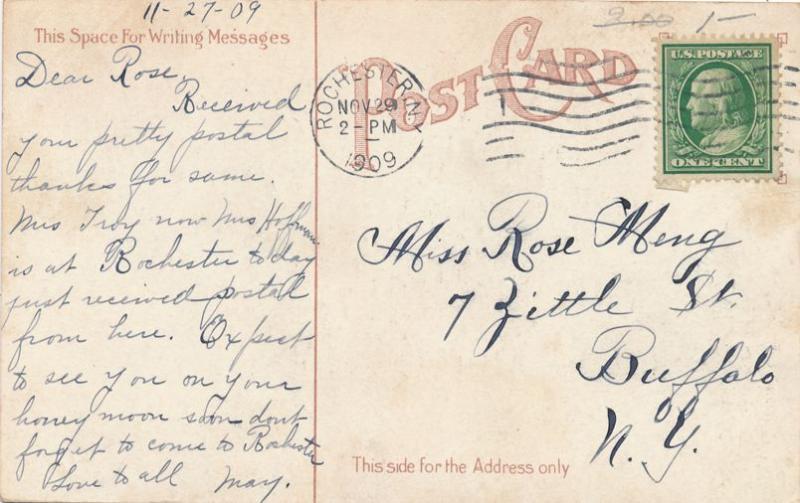 11-27-09
This Space For Writing Messages
Dear Rose,
Received
your pretty postal
thanks for same.
Mrs Troy now Mrs Hoffman
is at Rochester today
just received postal
from here. Expect
to see you on your
honey moon soon dont
forget to come to Rochester
Love to all May.
POST CARD
ROCHESTER, N.Y.
NOV 29
2-PM
1909
3.00 1-
U.S. POSTAGE
ONE CENT
Miss Rose Meng
7 Zittle St.
Buffalo
N.Y.
This side for the Address only